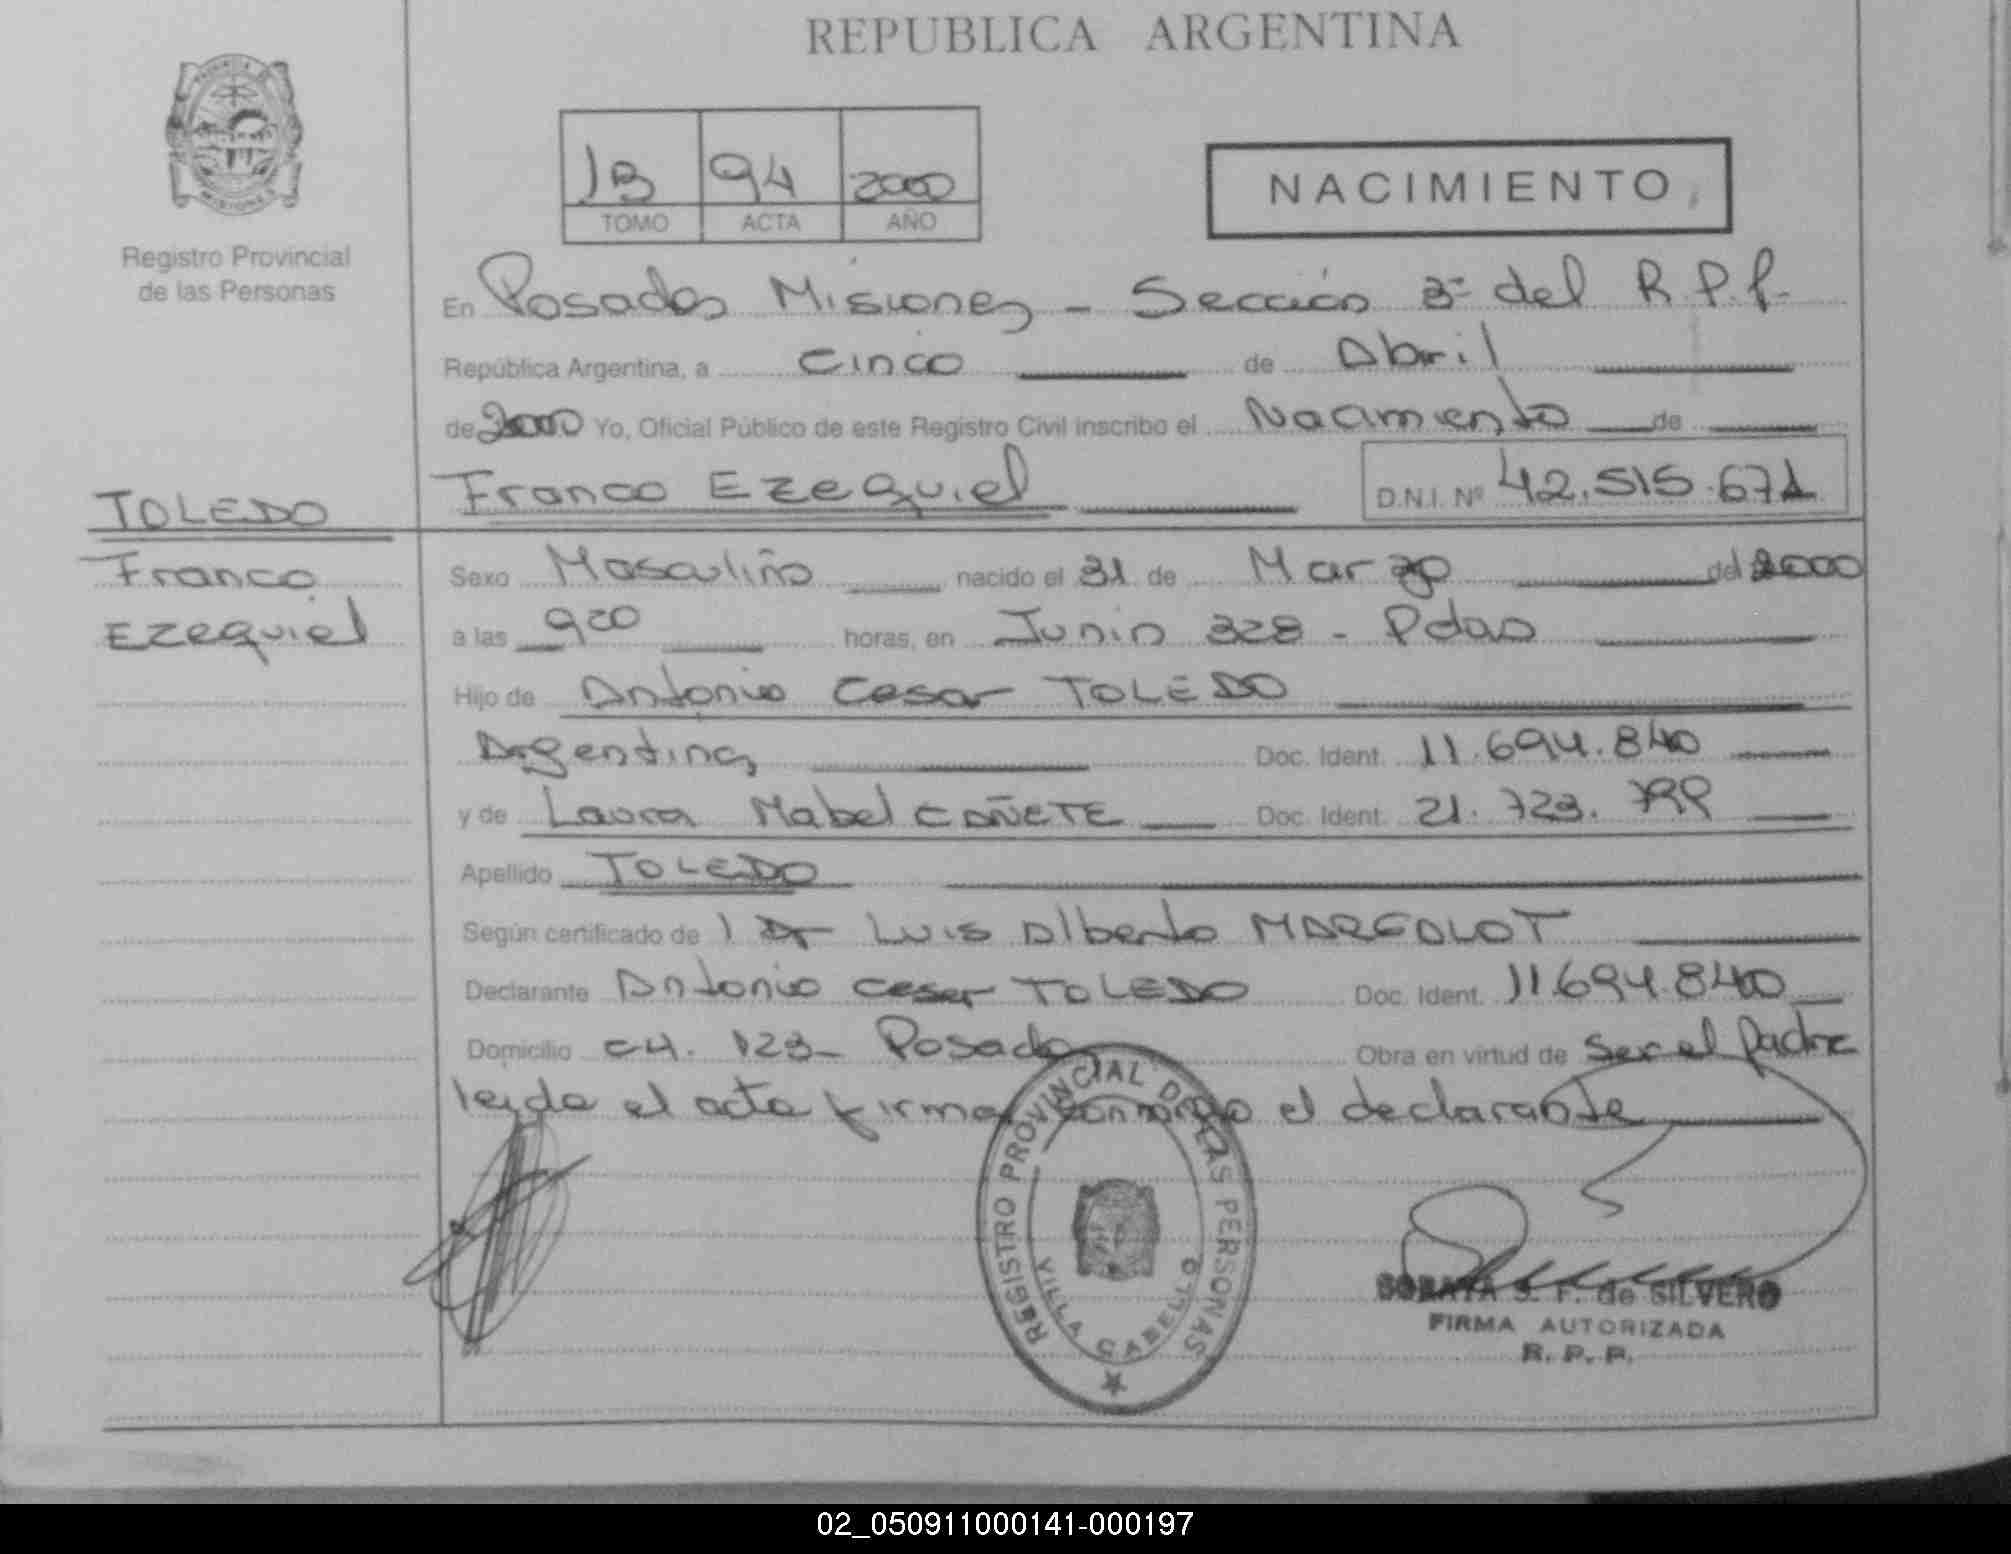 REPUBLICA ARGENTINA
PROVINCIA D
MISIONES
Registro Provincial
de las Personas
1B 94 2000
TOMO ACTA AÑO
NACIMIENTO
En Posadas Misiones - Sección 3ª del R.P.P.
República Argentina, a cinco de Abril
de 2000 Yo, Oficial Público de este Registro Civil inscribo el Nacimiento de
TOLEDO
Franco Ezequiel D.N.I. Nº 42.515.671
Franco
Ezequiel
Sexo Masculino nacido el 31 de Marzo del 2000
a las 920 horas, en Junin 328 - Pdas
Hijo de Antonio Cesar TOLEDO
Argentina Doc. Ident. 11.694.840
y de Laura Mabel CAÑETE Doc. Ident. 21.723.799
Apellido TOLEDO
Según certificado de 1 Dr Luis Alberto
Declarante Antonio Cesar TOLEDO Doc. Ident. 11.694.840
Domicilio C4. 123- Posadas Obra en virtud de ser el padre
leida el acta firma conmigo el declarante
REGISTRO PROVINCIAL DE LAS PERSONAS
VILLA CABELLO
SORAYA S. F. de SILVERO
FIRMA AUTORIZADA
R. P. P.
02_050911000141-000197